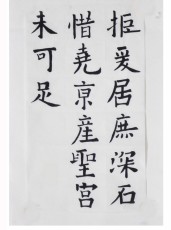 拒爰居庶深石
惜堯亰産聖宫
未可足